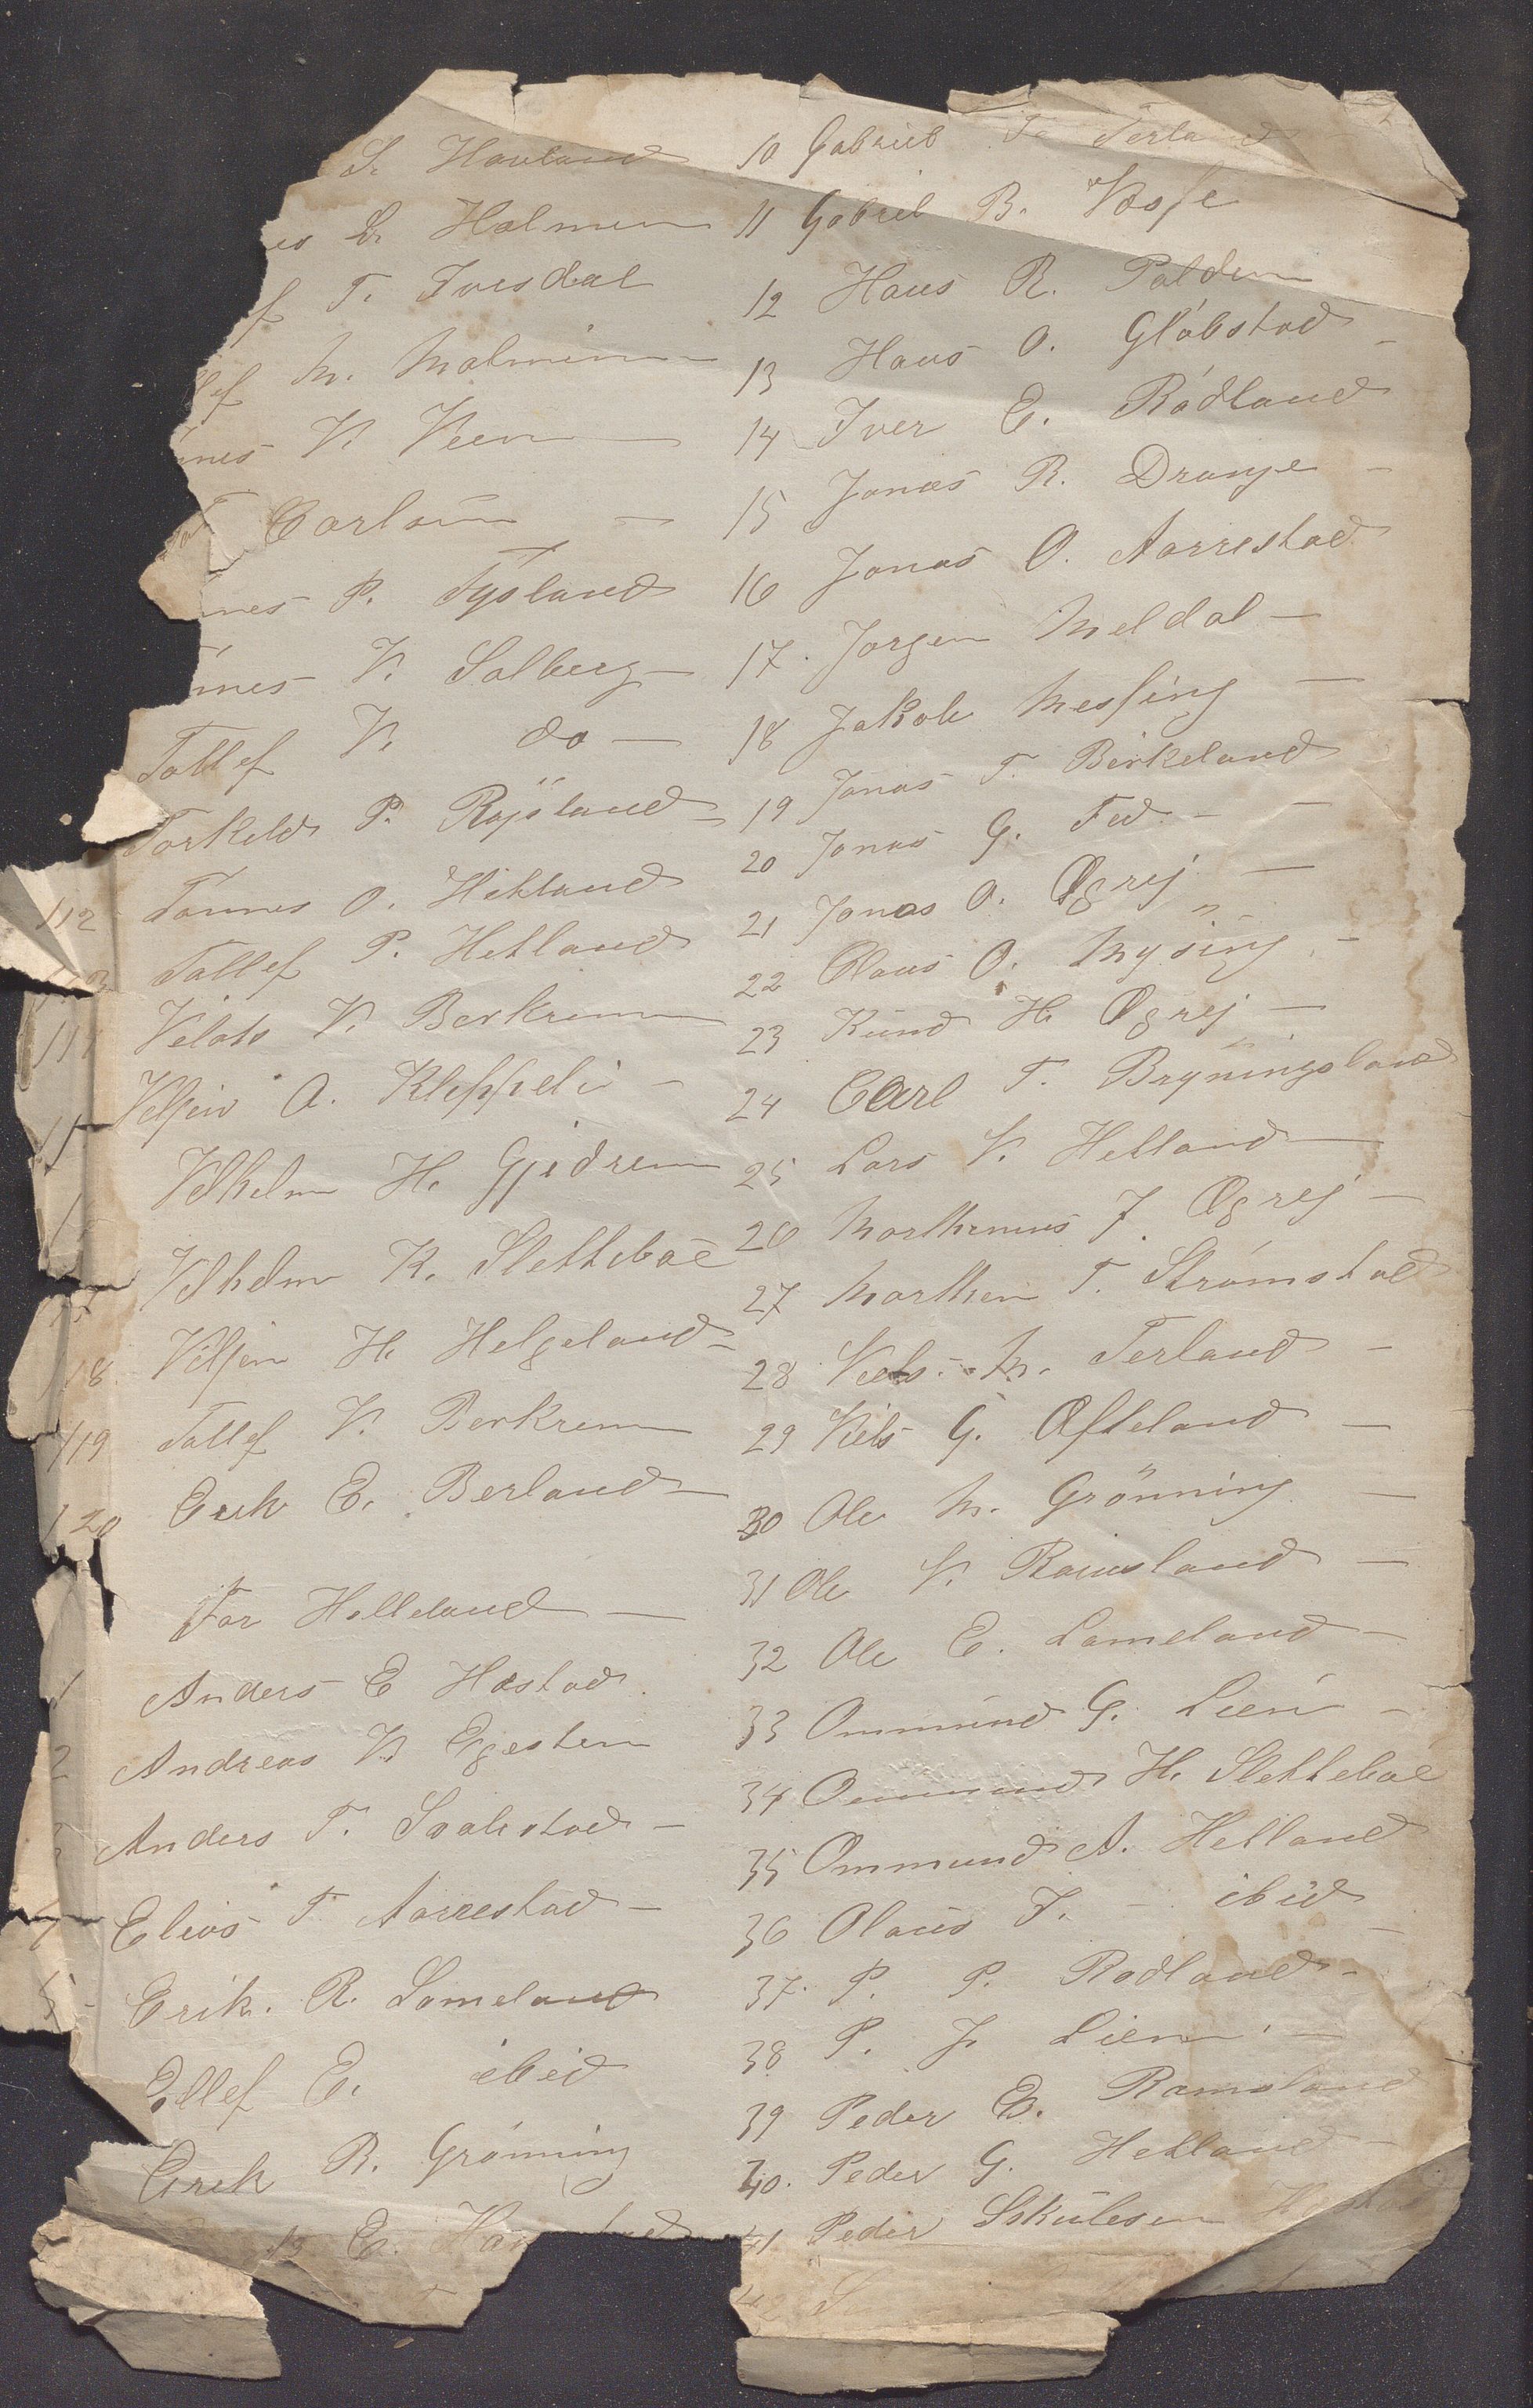 S. Hauland
es L. Holmen
f T. Ivesdal
lef M. Malmein
nnes V. Veen
Carlsen —
nnes P. Tysland
nnes V. Solberg —
Tollef V. do —
Torkeld P. Røysland —
112 Tønnes O. Hetland
113 Tollef P. Hetland
Velats V. Berkrem
A. Kleppeli —
Vilhelm H. Gjedrem
Vilhelm K. Slettebøe
18 H. Helgeland —
119 Tollef V. Berkrem
120 Erik E. Berland —
For Helleland —
1 Anders E Hæstad
2 Andreas V. Egesten
Anders T. Svalestad —
4 Elias T. Aarrestad —
5 Erik. R. Lomeland
Ellef E. ibid
Erik R. Grønning
E.
10 Gabriel T. Terland
11 Gabriel B. Vasse
12 Hans R. Polden
13 Hans O. Gløbstad —
14 Iver E. Rødland
15 Jonas R. Drange —
16 Jonas O. Aarrestad
17. Jørgen Meldal —
18 Jakob Messing —
19 Jonas T. Birkeland
20 Jonas G. Fed — —
21 Jonas O. Øgrej —
22 Claus O. Mysing —
23 Kund H. Øgrej —
24 Carl T. Bryningsland
25 Lars V. Hetland
26 Morthenius J. Øgrej —
27 Morthen T. Strømstad
28 Niels M. Terland —
29 Niels G. Øfteland —
30 Ole M. Grønning —
31 Ole V. Ramsland —
32 Ole E. Lomeland —
33 Ommund G. Lien —
34 Ommund H. Slettebøe
35 Ommund A. Hetland
36 Olaus T. — ibid
37. P. P. Rødland —
38 P. J. Lien —
39 Peder E. Ramsland
40. Peder G. Hetland —
41 Peder Skulesen Hæstad
42 S